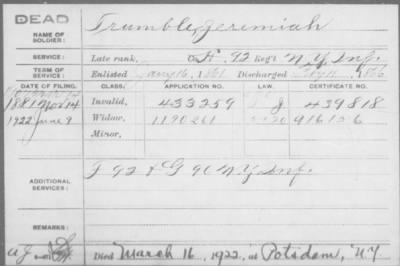 DEAD
NAME OF SOLDIER: Trumble, Jeremiah
SERVICE: Late rank, Co. H, 92 Reg't N.Y. Inf.
TERM OF SERVICE: Enlisted 16, 1861 Discharged 1866
DATE OF FILING. CLASS. APPLICATION NO. LAW. CERTIFICATE NO.
1881 Nov 14 Invalid, 433259 439818
1922 June 9 Widow, 1190261 916
Minor,
ADDITIONAL SERVICES: F 92 & G 90 N.Y. Inf.
REMARKS:
Died March 16, 1922, at Potsdam, N.Y.